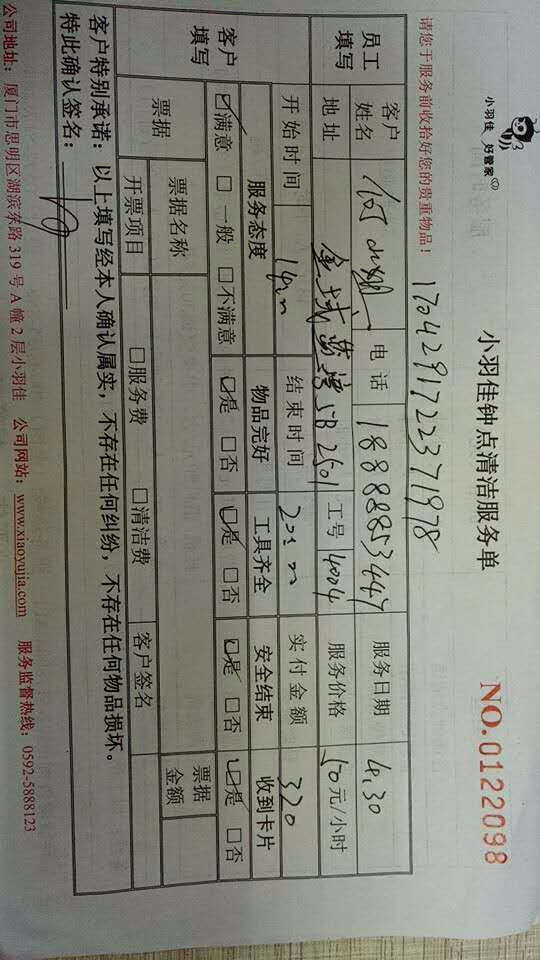 小羽佳 好管家
小羽佳钟点清洁服务单
NO.0122098
请您于服务前收拾好您的贵重物品！
1704291722371978
员工填写 客户姓名 电话 18888853447 服务日期 4.30
地址 5B 2501 工号 1404 服务价格 50元/小时
开始时间 结束时间 实付金额 320
客户填写 服务态度 物品完好 工具齐全 安全结束 收到卡片
☑满意 □一般 □不满意 ☑是 □否 ☑是 □否 ☑是 □否 ☑是 □否
票据 票据名称 票据金额
开票项目 □服务费 □清洁费 客户签名
客户特别承诺：以上填写经本人确认属实，不存在任何纠纷，不存在任何物品损坏。
特此确认签名：
公司地址：厦门市思明区湖滨东路319号A幢2层小羽佳 公司网站：www.xiaoyujia.com 服务监督热线：0592-5888123